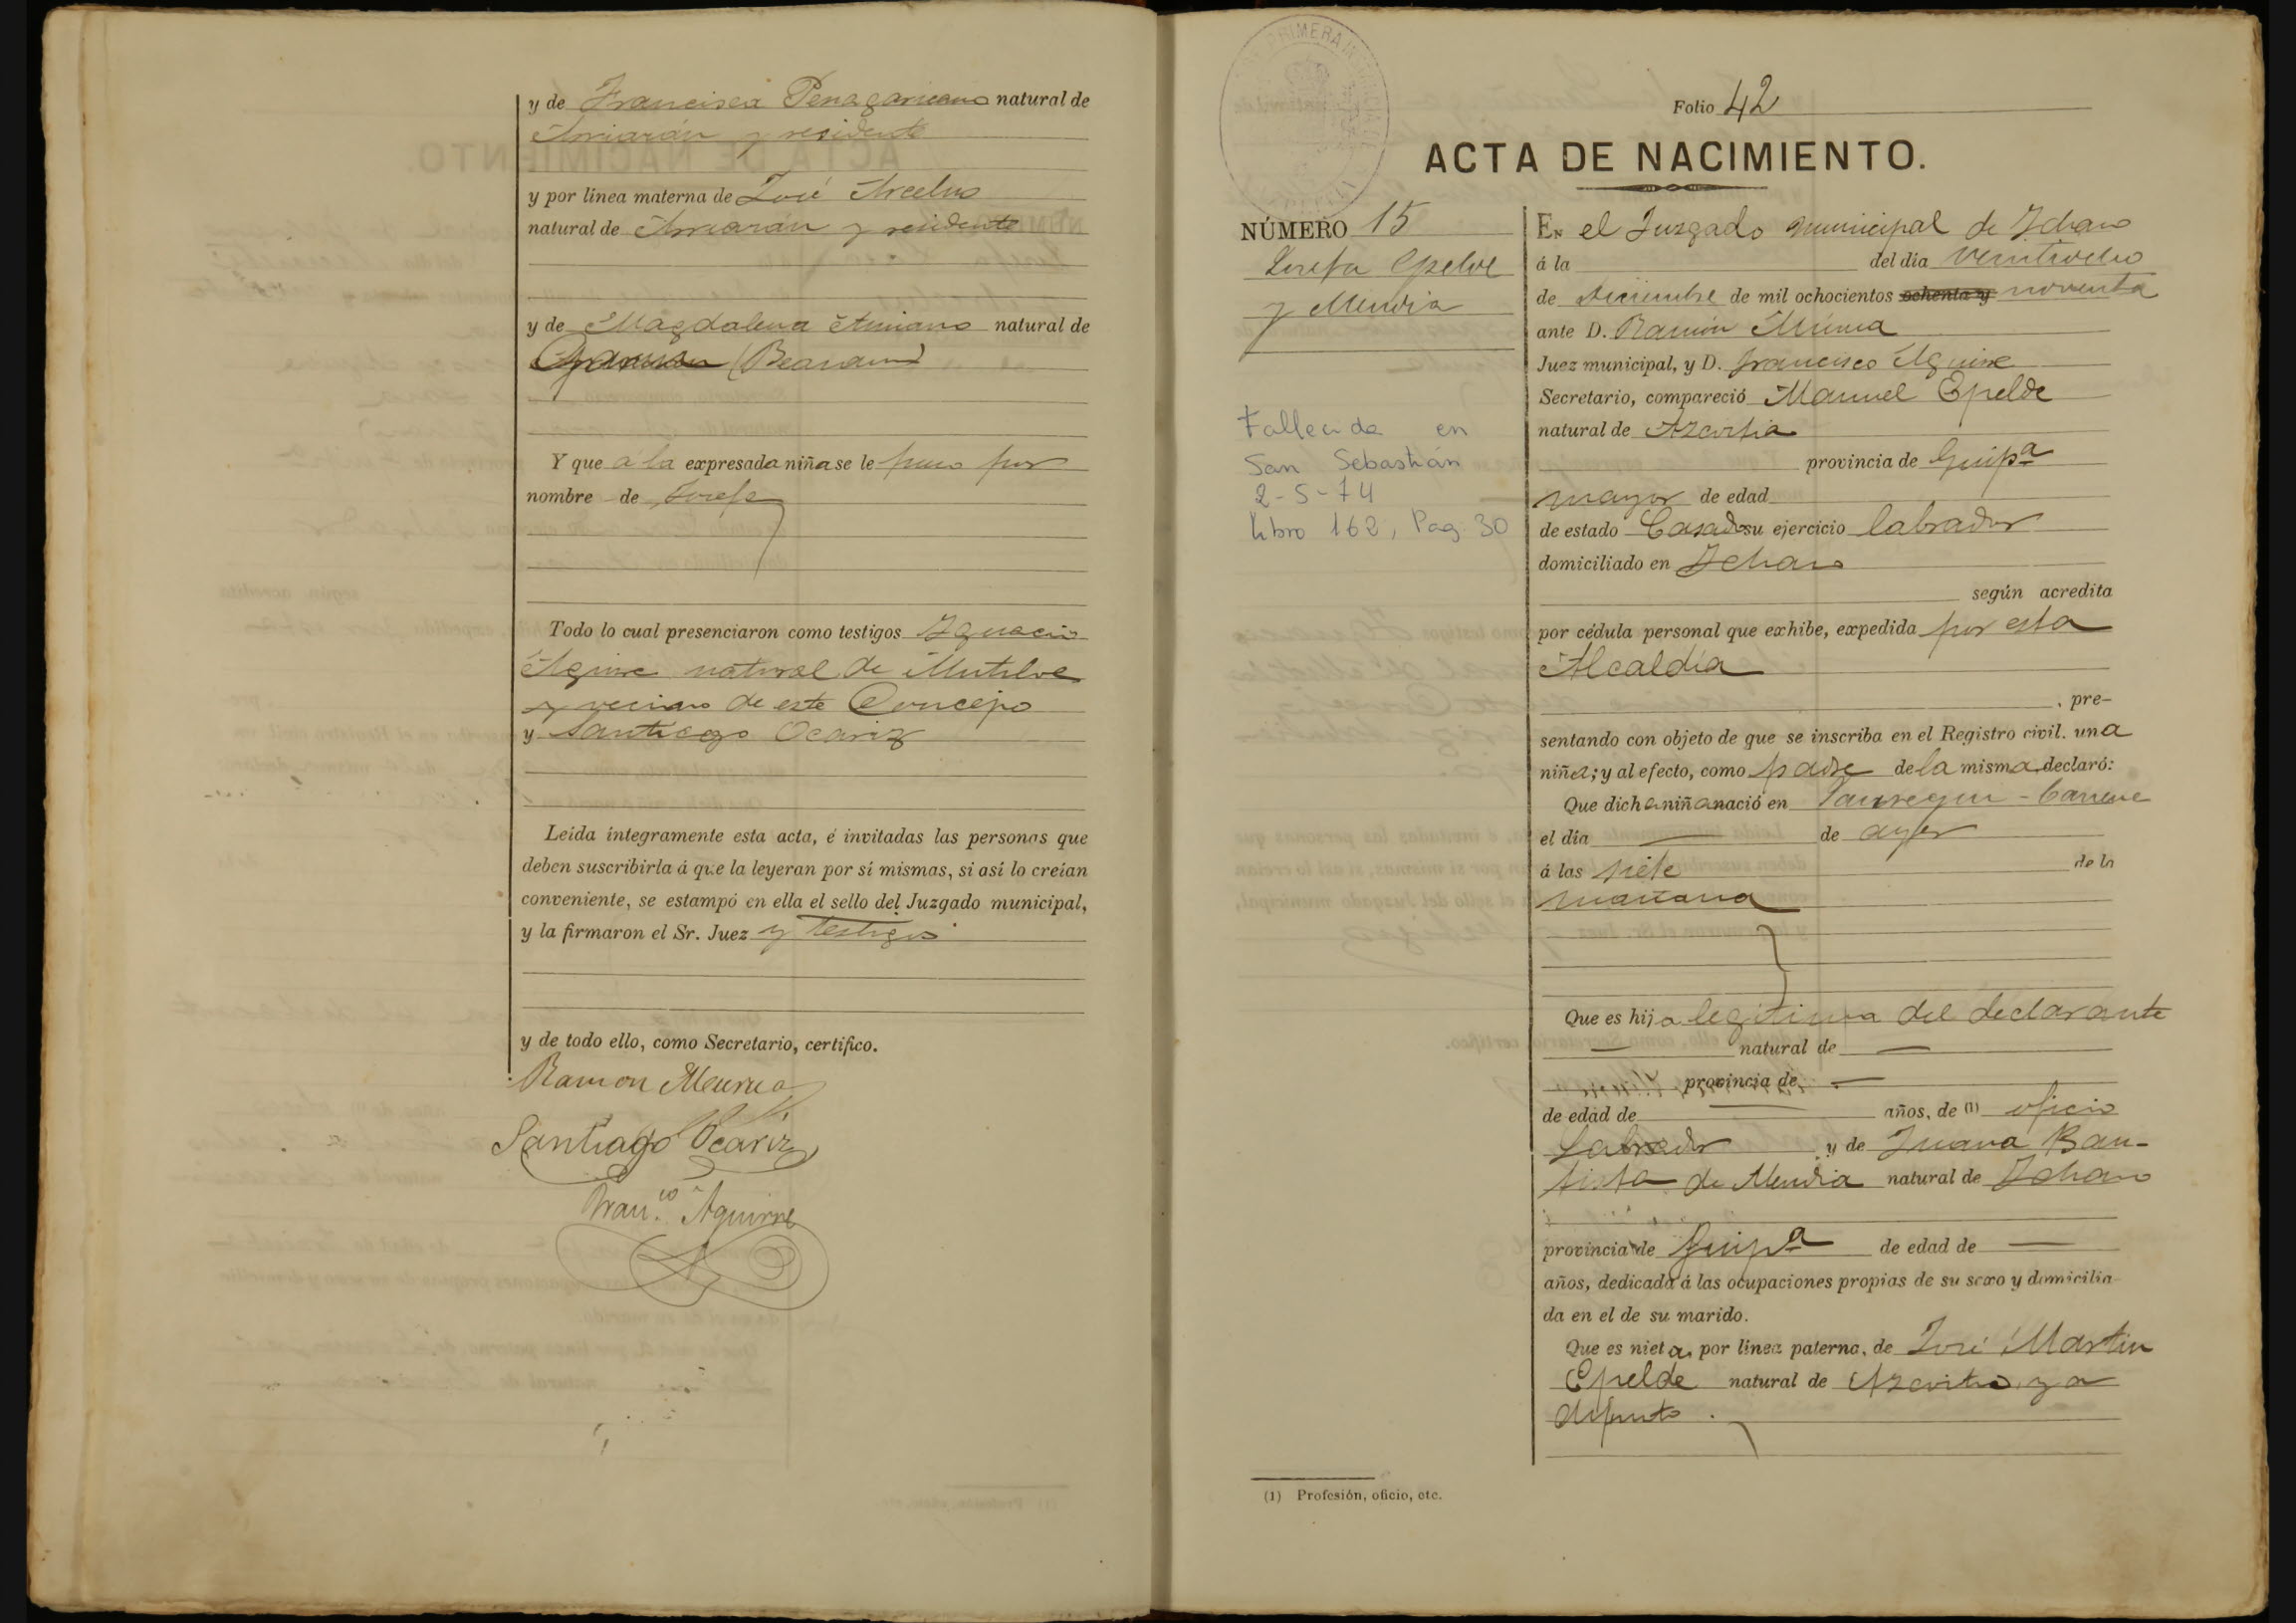 y de Francisca Penagaricano natural de
Arriarán y residente
y por linea materna de José Arcelus
natural de Arriarán y residente
y de Magdalena Amiano natural de
(Beasain)
Y que a la expresada niña se le puso por
nombre de Josefa
Todo lo cual presenciaron como testigos Ignacio
Aguirre natural de Mutiloa
y vecino de este Concejo
y Santiago Ocariz
Leida íntegramente esta acta, é invitadas las personas que
deben suscribirla á que la leyeran por sí mismas, si así lo creían
conveniente, se estampó en ella el sello del Juzgado municipal,
y la firmaron el Sr. Juez y testigos
y de todo ello, como Secretario, certifico.
Ramon Munua
Santiago Ocariz
Franco Aguirre
Folio 42
ACTA DE NACIMIENTO.
NÚMERO 15
Josefa Epelde
y Mendia
Fallecida en
San Sebastián
2-5-74
Libro 162, Pag. 30
EN el Juzgado municipal de Ichaso
á la del dia veintiocho
de Diciembre de mil ochocientos ochenta y noventa
ante D. Ramón Múnua
Juez municipal, y D. Francisco Aguirre
Secretario, compareció Manuel Epelde
natural de Azcoitia
provincia de Guipa
mayor de edad
de estado Casado su ejercicio labrador
domiciliado en Ichaso
según acredita
por cédula personal que exhibe, expedida por esta
Alcaldía
, pre-
sentando con objeto de que se inscriba en el Registro civil. una
niña; y al efecto, como padre de la misma declaró:
Que dicha niña nació en
el día — de ayer
á las siete de la
mañana
Que es hija legitima del declarante
— natural de —
provincia de —
de edad de — años, de (1) oficio
Labrador y de Juana Bau-
tista de Mendia natural de Ichaso
provincia de Guipa de edad de —
años, dedicada á las ocupaciones propias de su sexo y domicilia-
da en el de su marido.
Que es nieta, por linea paterna, de José Martin
Epelde natural de Azcoitia, ya
difunto.
(1) Profesión, oficio, etc.